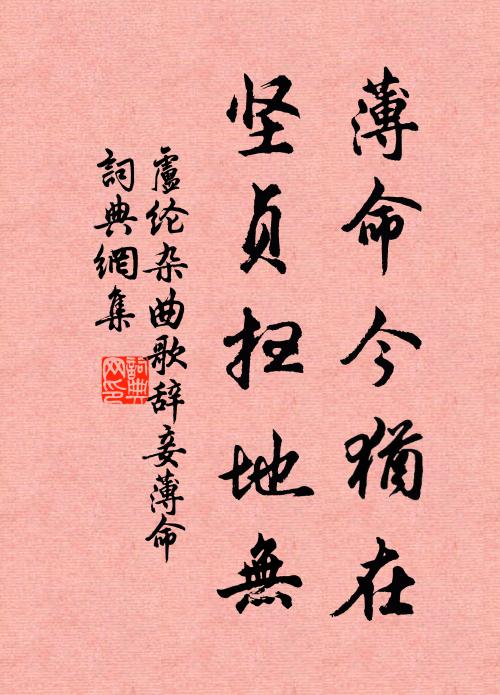 薄命今猶在
坚贞扫地無
盧纶杂曲歌辞妾薄命
詞典網集
詞典
网印